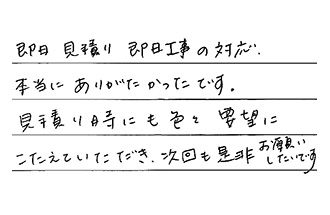 即日 見積り 即日工事の対応.
本当に ありがたかったです。
見積り時にも色々 要望に
こたえていただき、次回も是非お願い
したいです